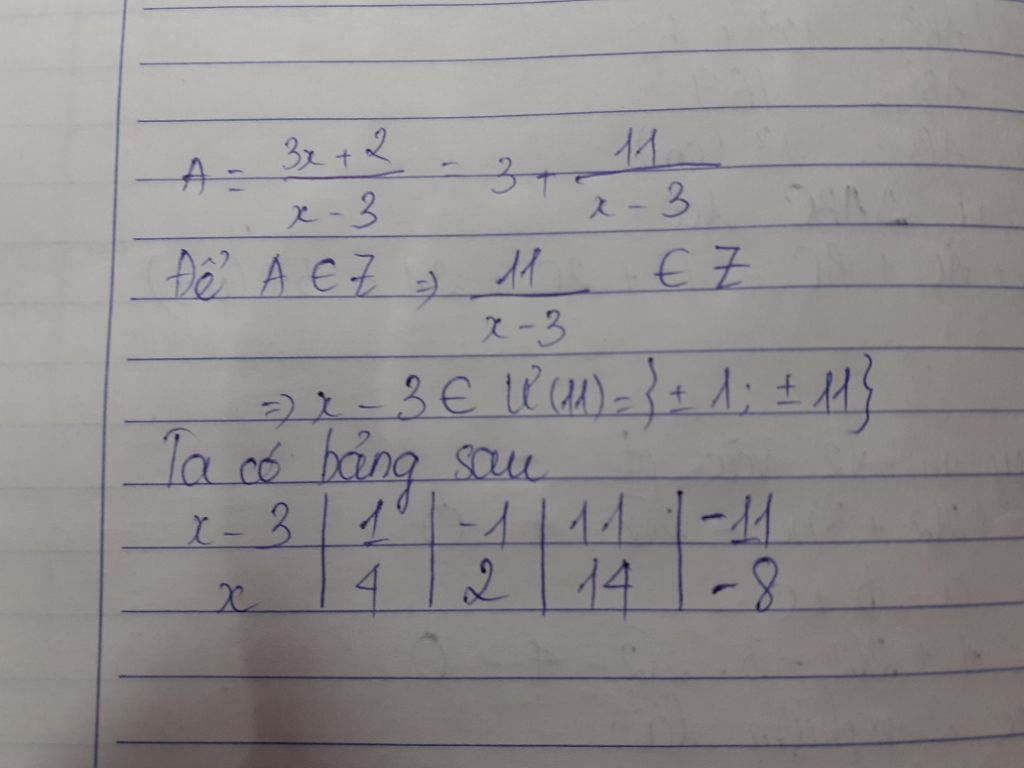 A = \frac{3x+2}{x-3} = 3 + \frac{11}{x-3}
Để A ∈ Z => \frac{11}{x-3} ∈ Z
=> x - 3 ∈ Ư(11) = {± 1; ± 11}
Ta có bảng sau
x - 3 | 1 | -1 | 11 | -11
x | 4 | 2 | 14 | -8